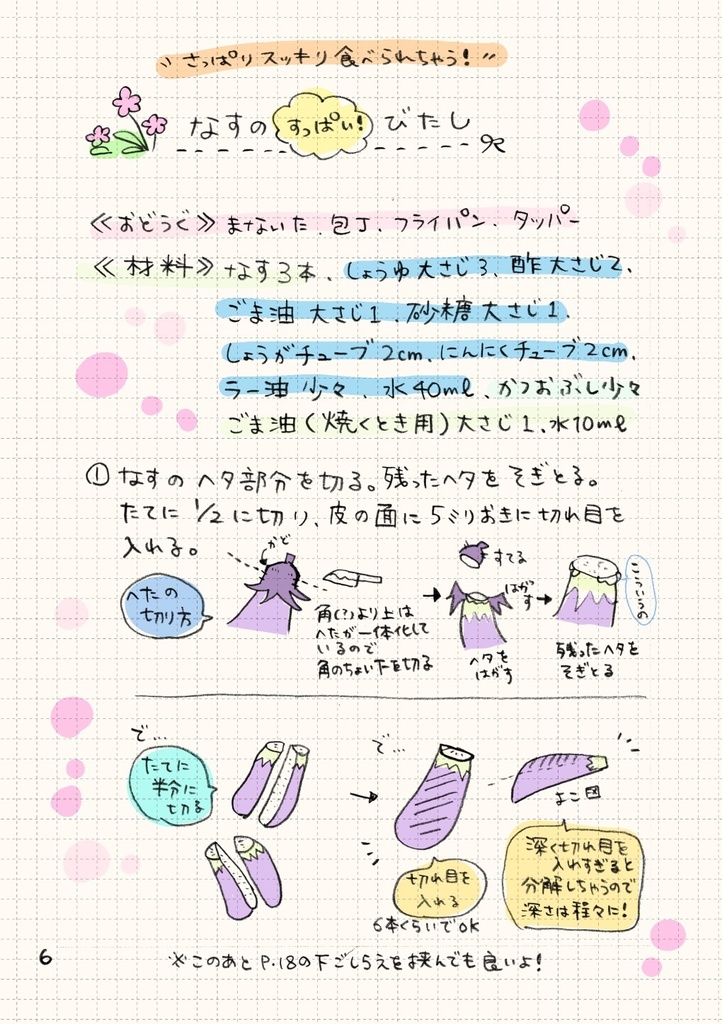 さっぱりスッキリ食べられちゃう！
なすのすっぱい！びたし
≪おどうぐ≫ まないた、包丁、フライパン、タッパー
≪材料≫ なす3本、しょうゆ大さじ3、酢大さじ2、
ごま油 大さじ1、砂糖大さじ1、
しょうがチューブ2cm、にんにくチューブ2cm、
ラー油 少々、水40ml、かつおぶし少々
ごま油(焼くとき用)大さじ1、水10ml
① なすのヘタ部分を切る。残ったヘタをそぎとる。
たてに1/2に切り、皮の面に5ミリおきに切れ目を
入れる。
へたの
切り方
かど
角(?)より上は
へたが一体化して
いるので
角のちょい下を切る
すてる
はがす
ヘタを
はがす
残ったヘタを
そぎとる
で…
たてに
半分に
切る
で…
切れ目を
入れる
6本くらいでOK
よこ図
深く切れ目を
入れすぎると
分解しちゃうので
深さは程々に！
※このあとP.18の下ごしらえを挟んでも良いよ！
6